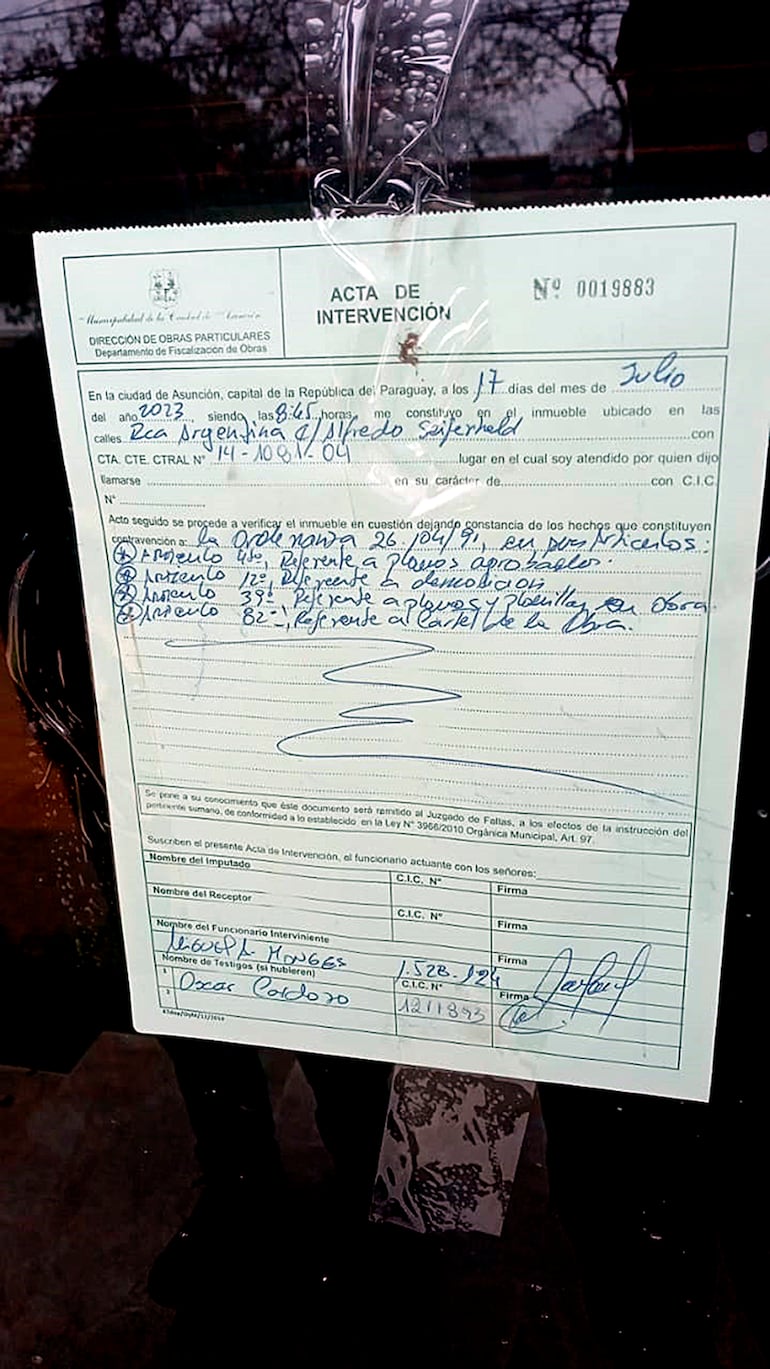 Municipalidad de la Ciudad de Asunción
DIRECCIÓN DE OBRAS PARTICULARES
Departamento de Fiscalización de Obras
ACTA DE
INTERVENCIÓN
Nº 0019883
En la ciudad de Asunción, capital de la República del Paraguay, a los 17 días del mes de Julio
del año 2023 siendo las 8:45 horas, me constituyo en el inmueble ubicado en las
calles Rca Argentina c/ Alfredo Seiferheld con
CTA. CTE. CTRAL N° 14-1081-04 lugar en el cual soy atendido por quien dijo
llamarse en su carácter de con C.I.C.
N°
Acto seguido se procede a verificar el inmueble en cuestión dejando constancia de los hechos que constituyen
contravención a: la Ordenanza 26.104/91, en sus Articulos:
Articulo 4º, Referente a planos aprobados.
Articulo 12º, Referente a demolicion
Articulo 39º Referente a planos y planillas en Obra.
Articulo 82º, Referente al Cartel de la Obra.
Se pone a su conocimiento que éste documento será remitido al Juzgado de Faltas, a los efectos de la instrucción del
pertinente sumario, de conformidad a lo establecido en la Ley N° 3966/2010 Orgánica Municipal, Art. 97.
Suscriben el presente Acta de Intervención, el funcionario actuante con los señores:
Nombre del Imputado C.I.C. N° Firma
Nombre del Receptor C.I.C. N° Firma
Nombre del Funcionario Interviniente Firma
Miguel A. Monges 1.528.124
Nombre de Testigos (si hubieren) C.I.C. N° Firma
1 Oscar Cardozo 1211893
2